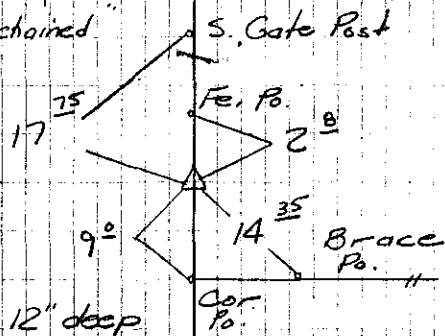 chained" S. Gate Post
Fe. Po.
17 75
2 8
9 0
14 35
Brace
Po.
12" deep
Cor
Po.